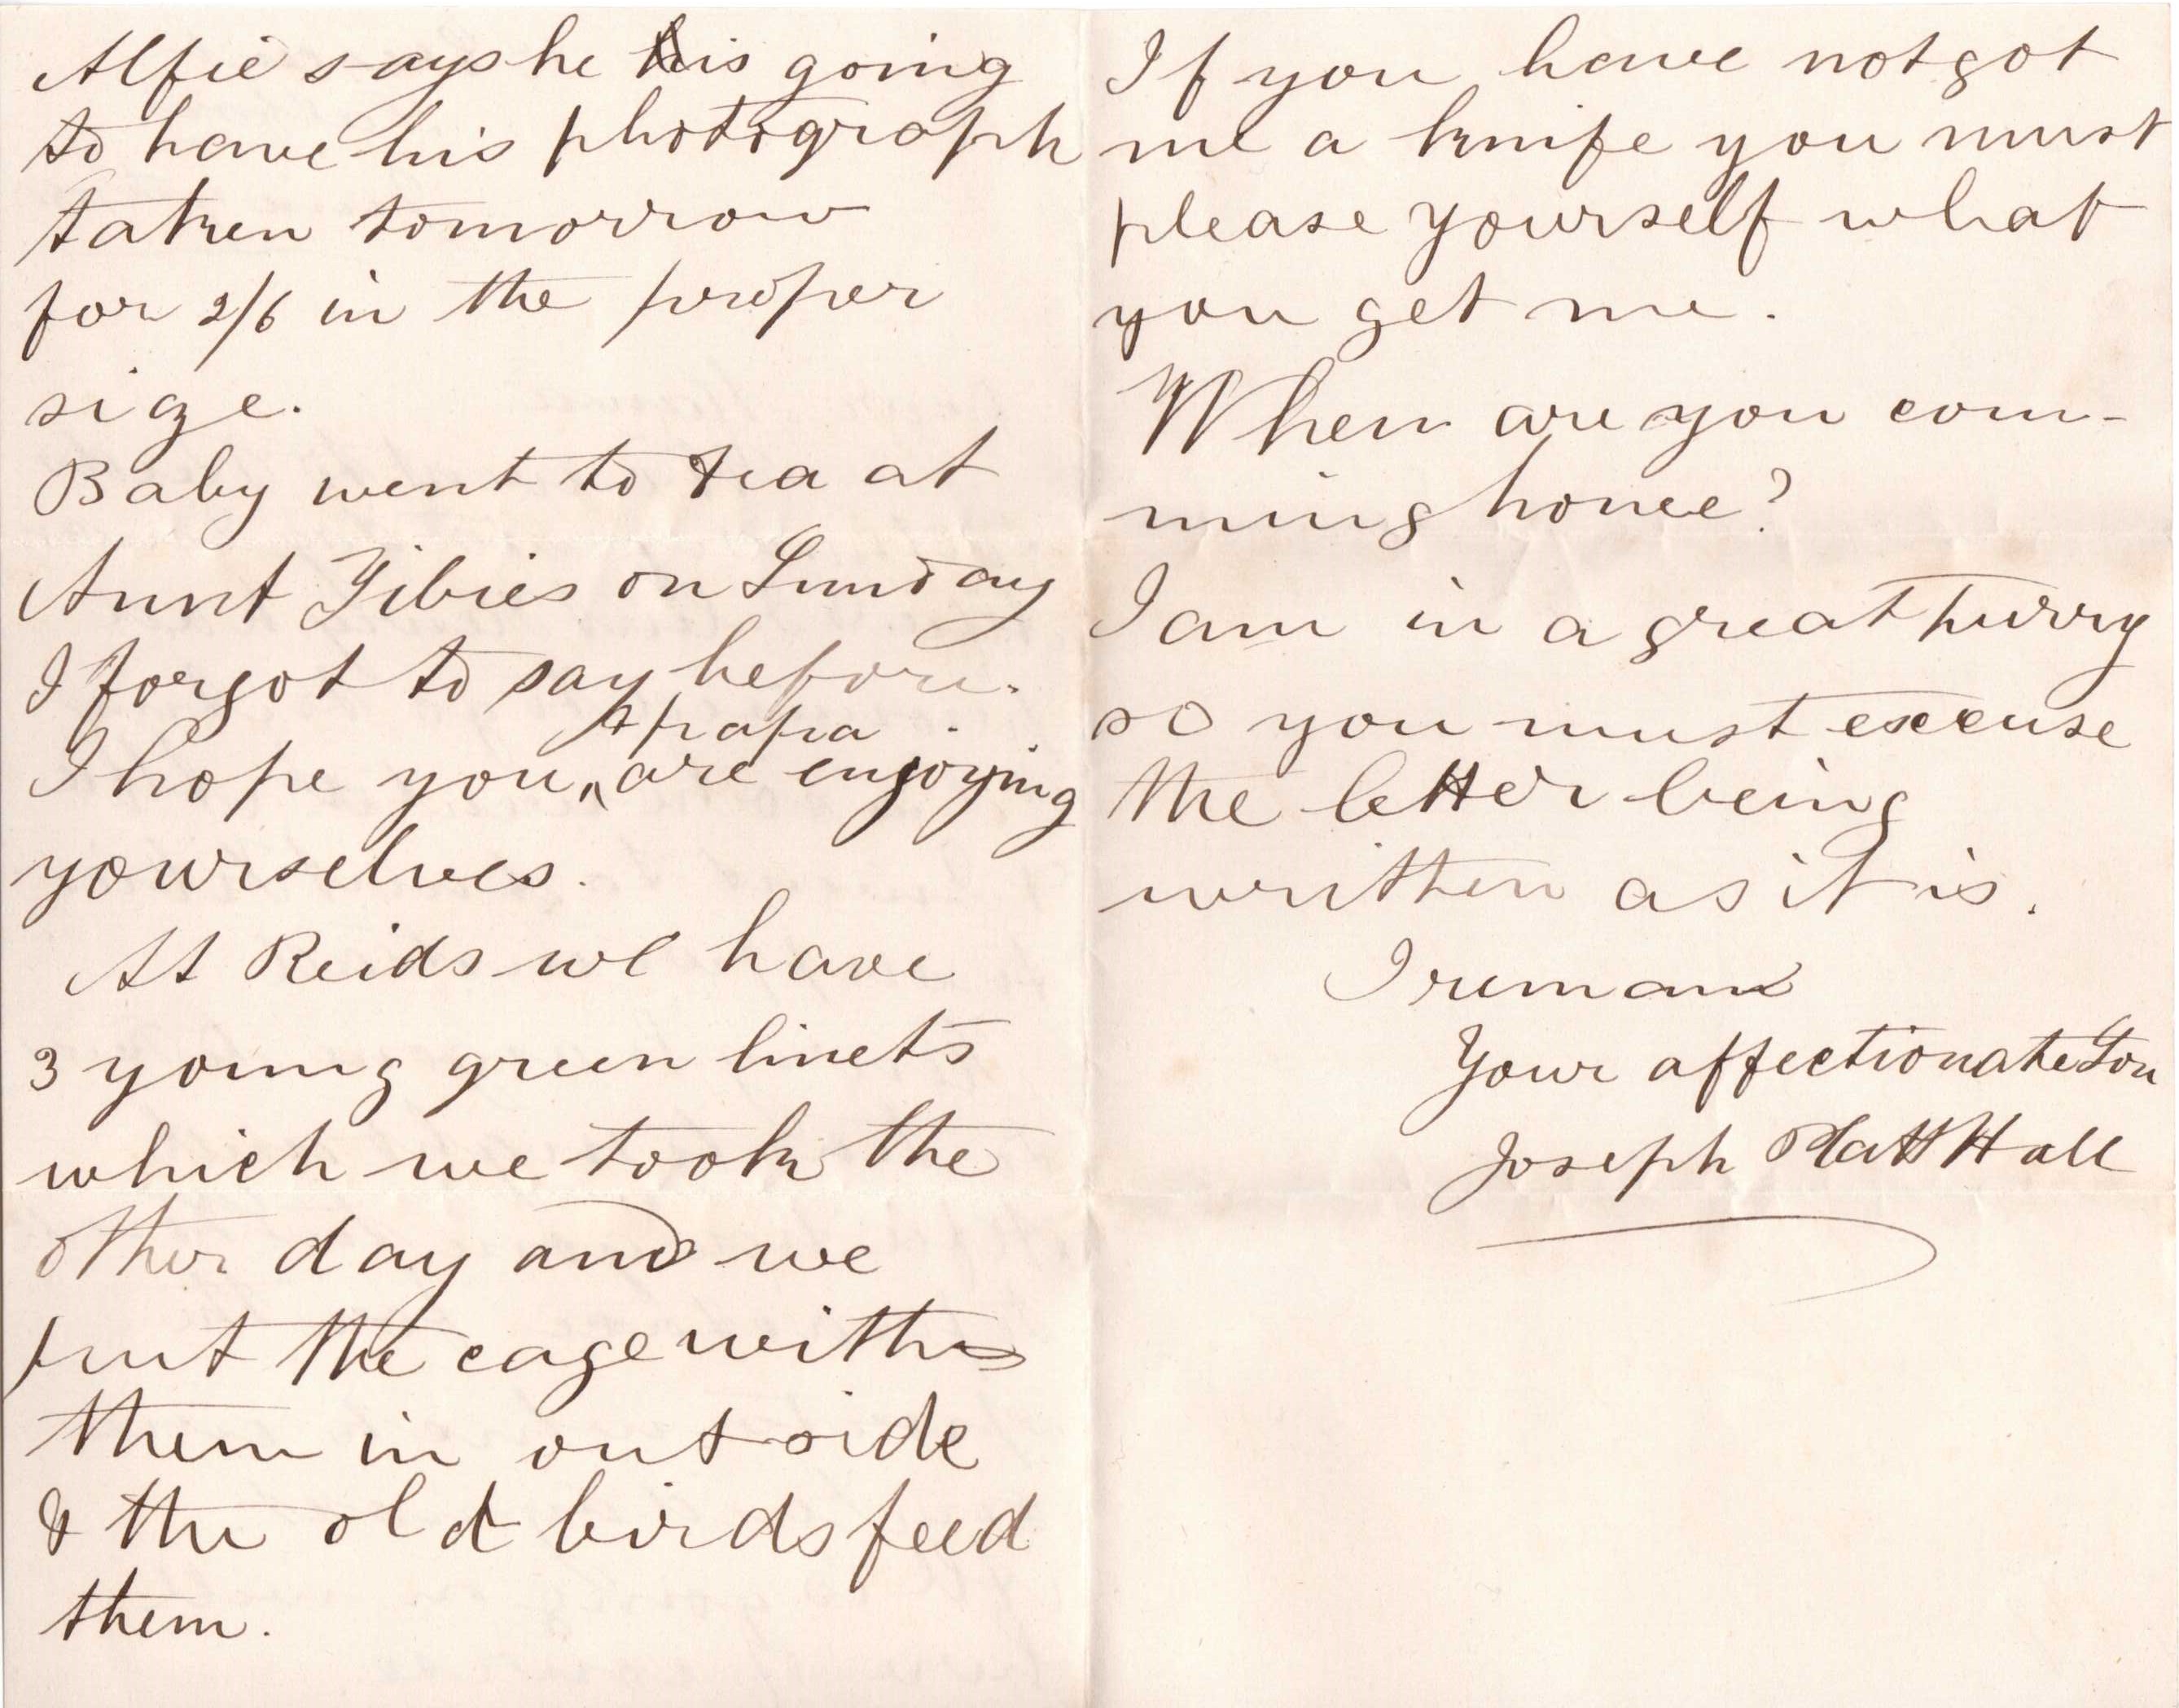 Alfie says he is going
to have his photograph
taken tomorrow
for 2/6 in the proper
size.
Baby went to tea at
Aunt Tibies on Sunday
I forgot to say before.
& papa
I hope you, are enjoying
yourselves.
At Reids we have
3 young green linets
which we took the
other day and we
put the cage with
them in outside
& the old birds feed
them.
If you have not got
me a knife you must
please yourself what
you get me.
When are you com-
ming home?
I am in a great hurry
so you must excuse
the letter being
written as it is.
I remain
Your affectionate Son
Joseph Platt Hall